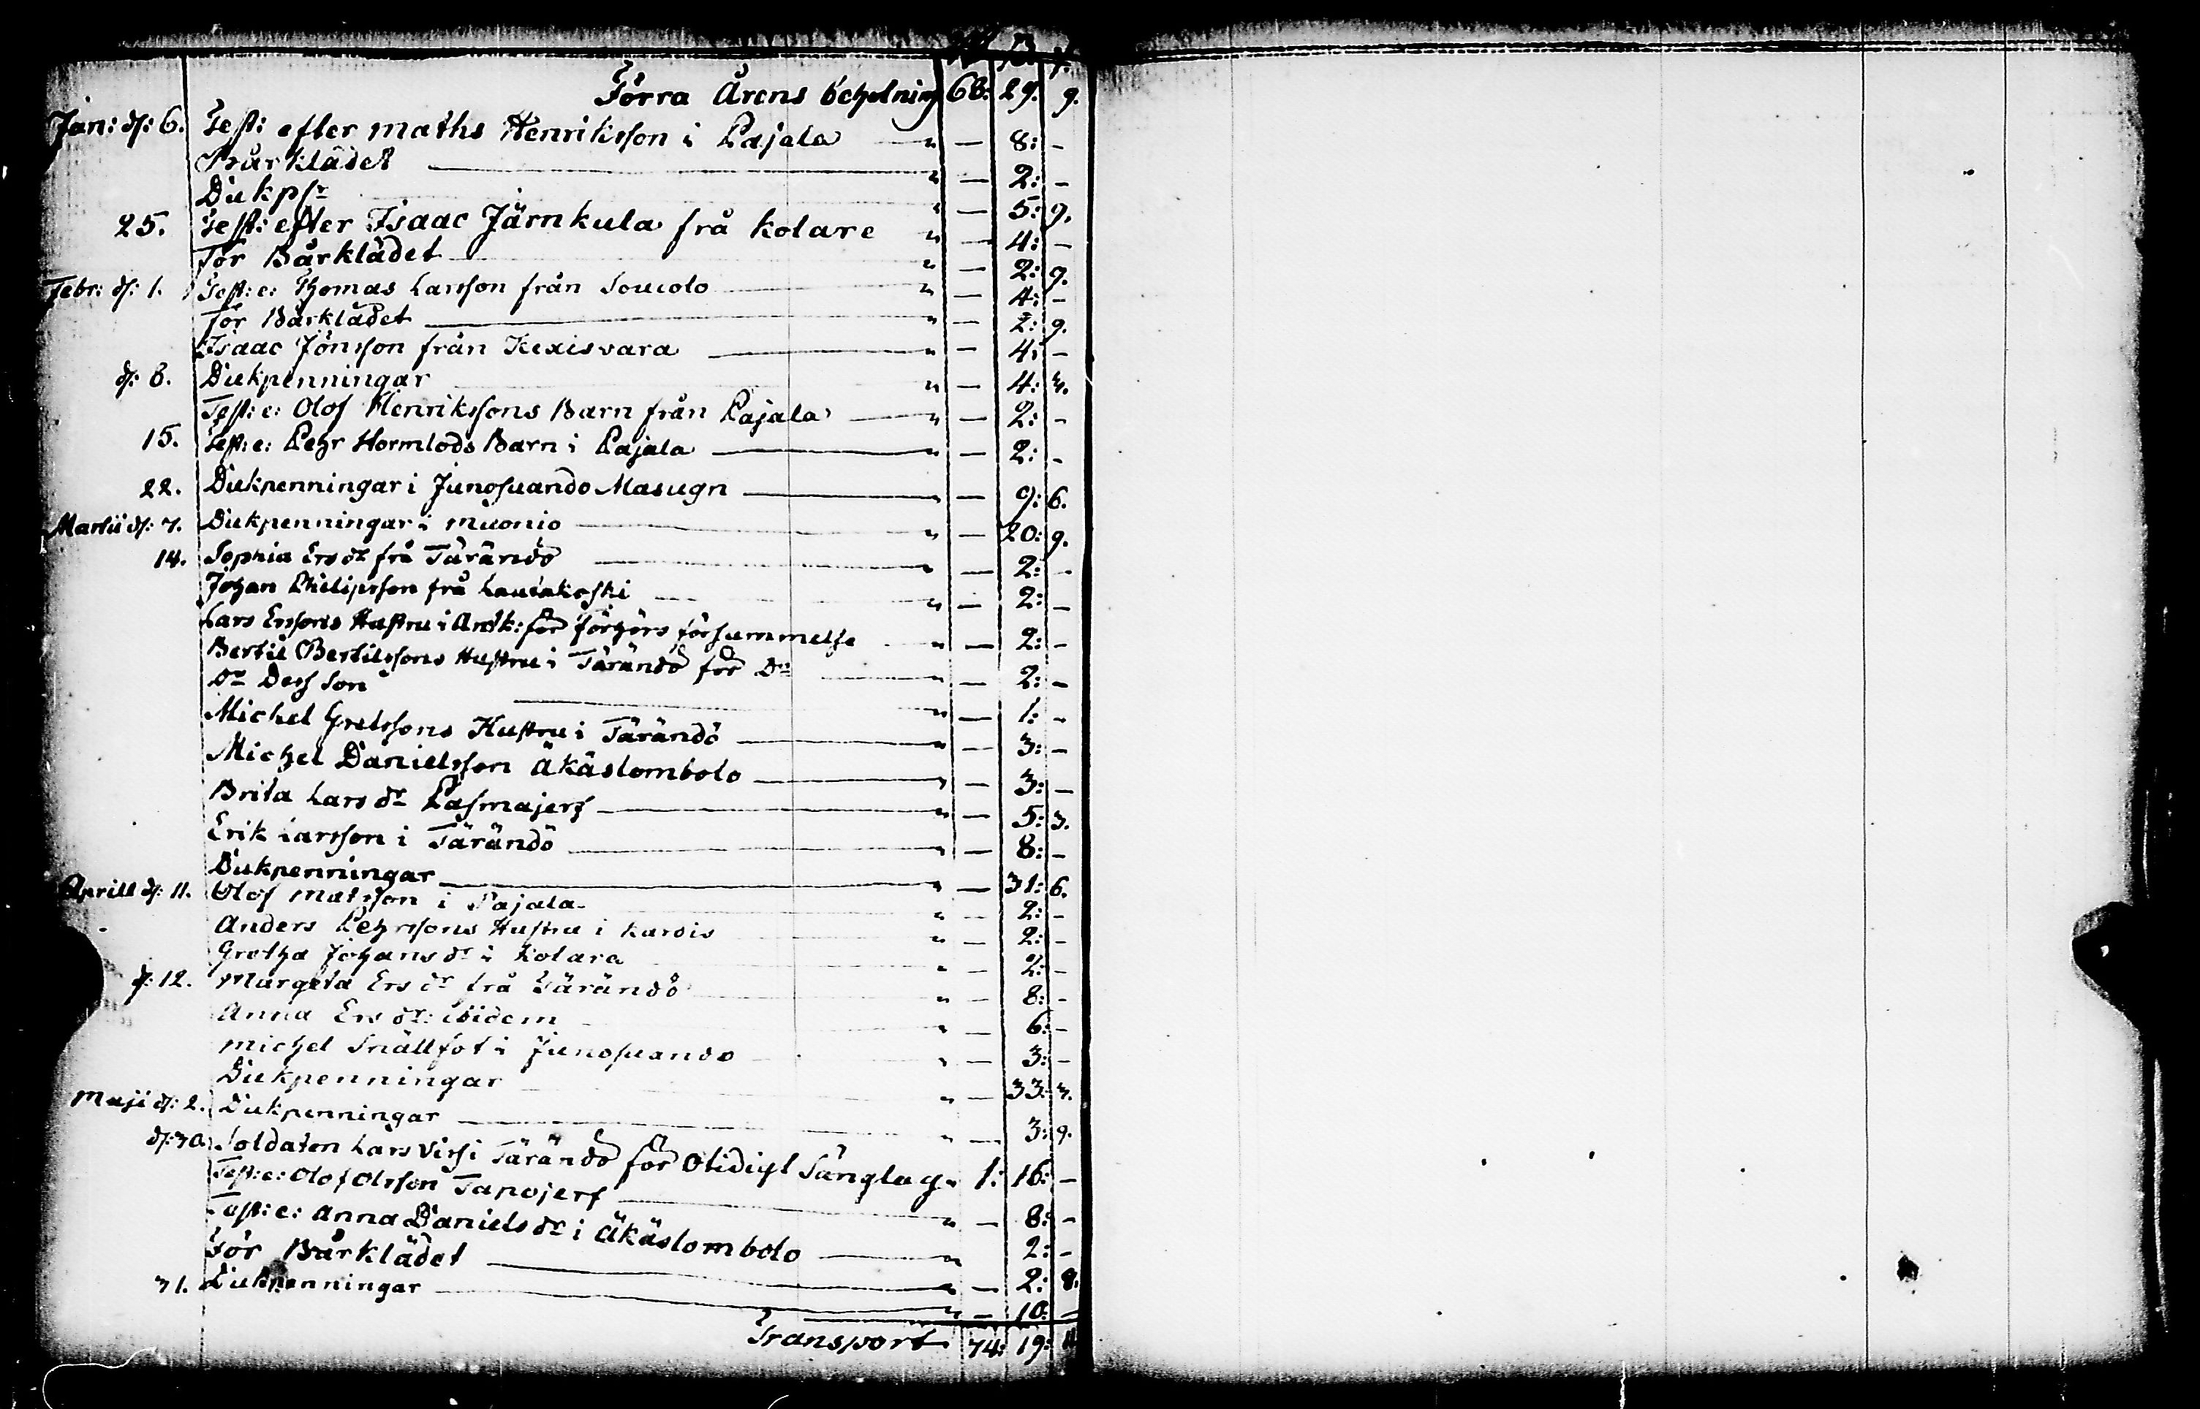 Förra Årens behollning 68: 29. 9.
Jan: d: 6. Test: efter maths Henriksson i Pajala " — 8: -
Bårklädet " — 2: -
Diukpgr " — 5: 9.
25. Test: efter Isaac Järnkula frå kolare " — 4: -
för Bårklädet " — 2: 9.
Febr: d: 1. Test: e: Thomas Larsson från Soucolo " — 4: -
för Bårklädet " — 2: 9.
Isaac Jönsson från Kexisvara " — 4: -
d: 8. Diukpenningar " — 4: 3.
Test: e: Olof Henrikssons Barn från Pajala " — 2: -
15. Test: e: Pehr Hormlods Barn i Pajala " — 2: -
22. Diukpenningar i Junosuando Masugn " — 9: 6.
Martii d: 7. Diukpenningar i muonio " — 20: 9.
14. Sophia Ers dr frå Tärändö " — 2: -
Johan Philipsson frå Lauiakoski " — 2: -
Lars Erssons Hustru i för förhörs försummelse " — 2: -
Bertil Bertilssons Hustru i Tärändö för Do " — 2: -
Do Dess Son " — 1: -
Michel Gretssons Hustru i Tärändö " — 3: -
Michel Danielsson Äkäslombolo " — 3: -
Brita Lars dr Pasmajerf " — 5: 3.
Erik Larsson i Tärändö " — 8: -
Diukpenningar " — 31: 6.
Aprill d: 11. Olof matsson i Pajala " — 2: -
Anders Pehrssons Hustru i kardis " — 2: -
Gretha Johans dr i kolara " — 2: -
d: 12. Margeta Ers dr frå Tärändö " — 8: -
Anna Ers dr: ibidem " — 6: -
michel Snällfot i Junosuando " — 3: -
Diukpenningar " — 33: 3.
Maji d: 2. Diukpenningar " — 3: 9.
d: 30. Soldaten Lars Virf i Tärändö för Otidigt Sänglag " 1: 16: -
Test: e: Olof Olsson Tapojerf " — 8: -
Test: e: Anna Daniels dr i Äkäslombolo " 2: -
För Bårklädet " — 2: 8.
31. Diukpenningar " — 10: -
Transport 74: 19: 11